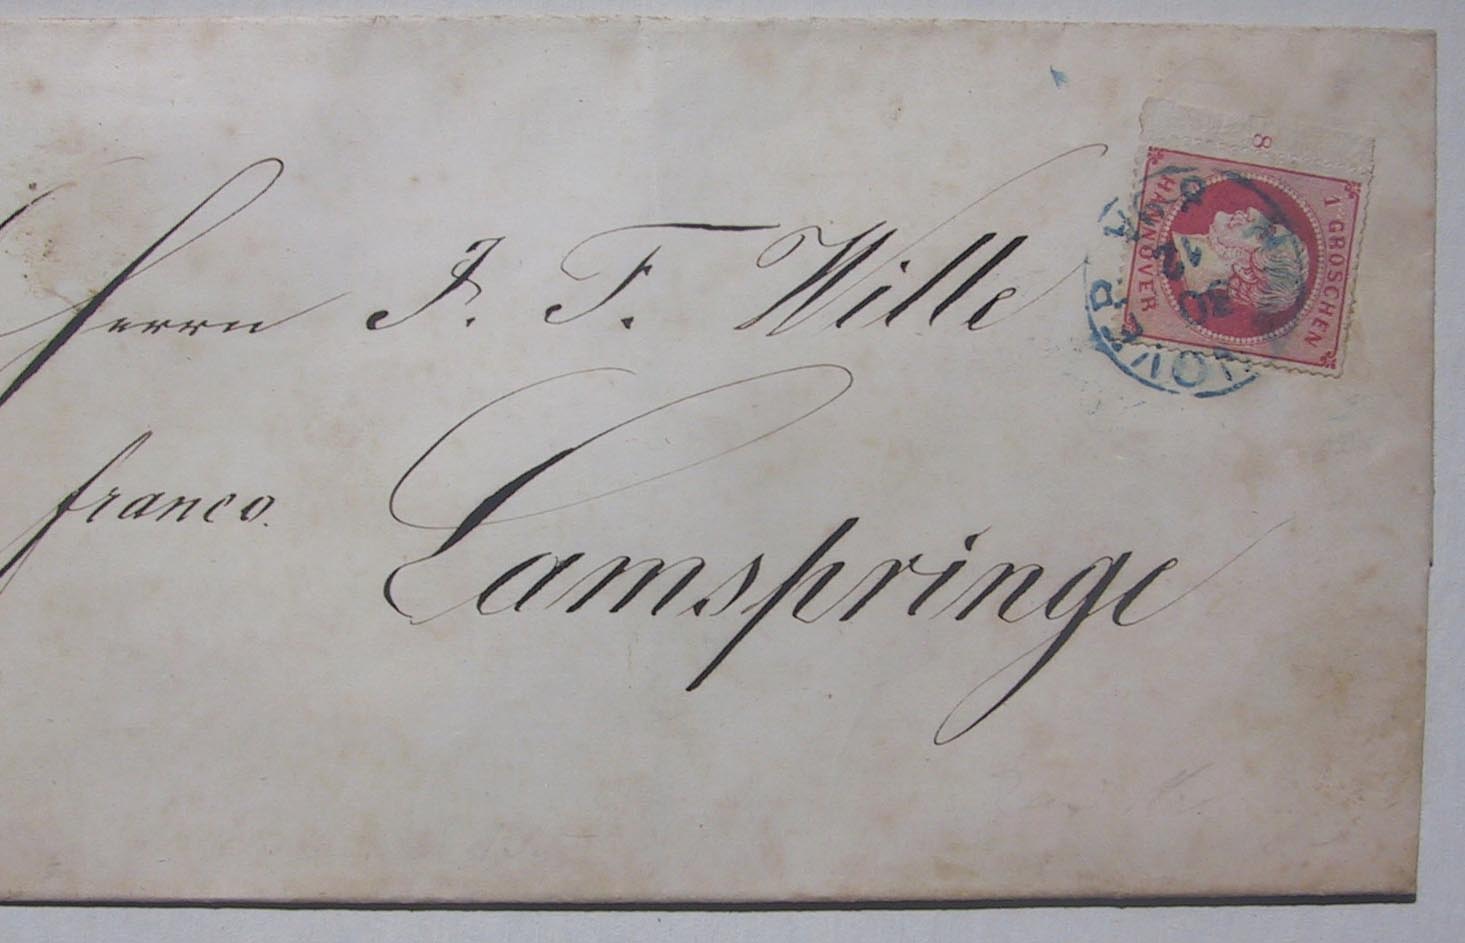 8
1 GROSCHEN
HANNOVER
Herrn J. F. Wille
franco.
Lamspringe